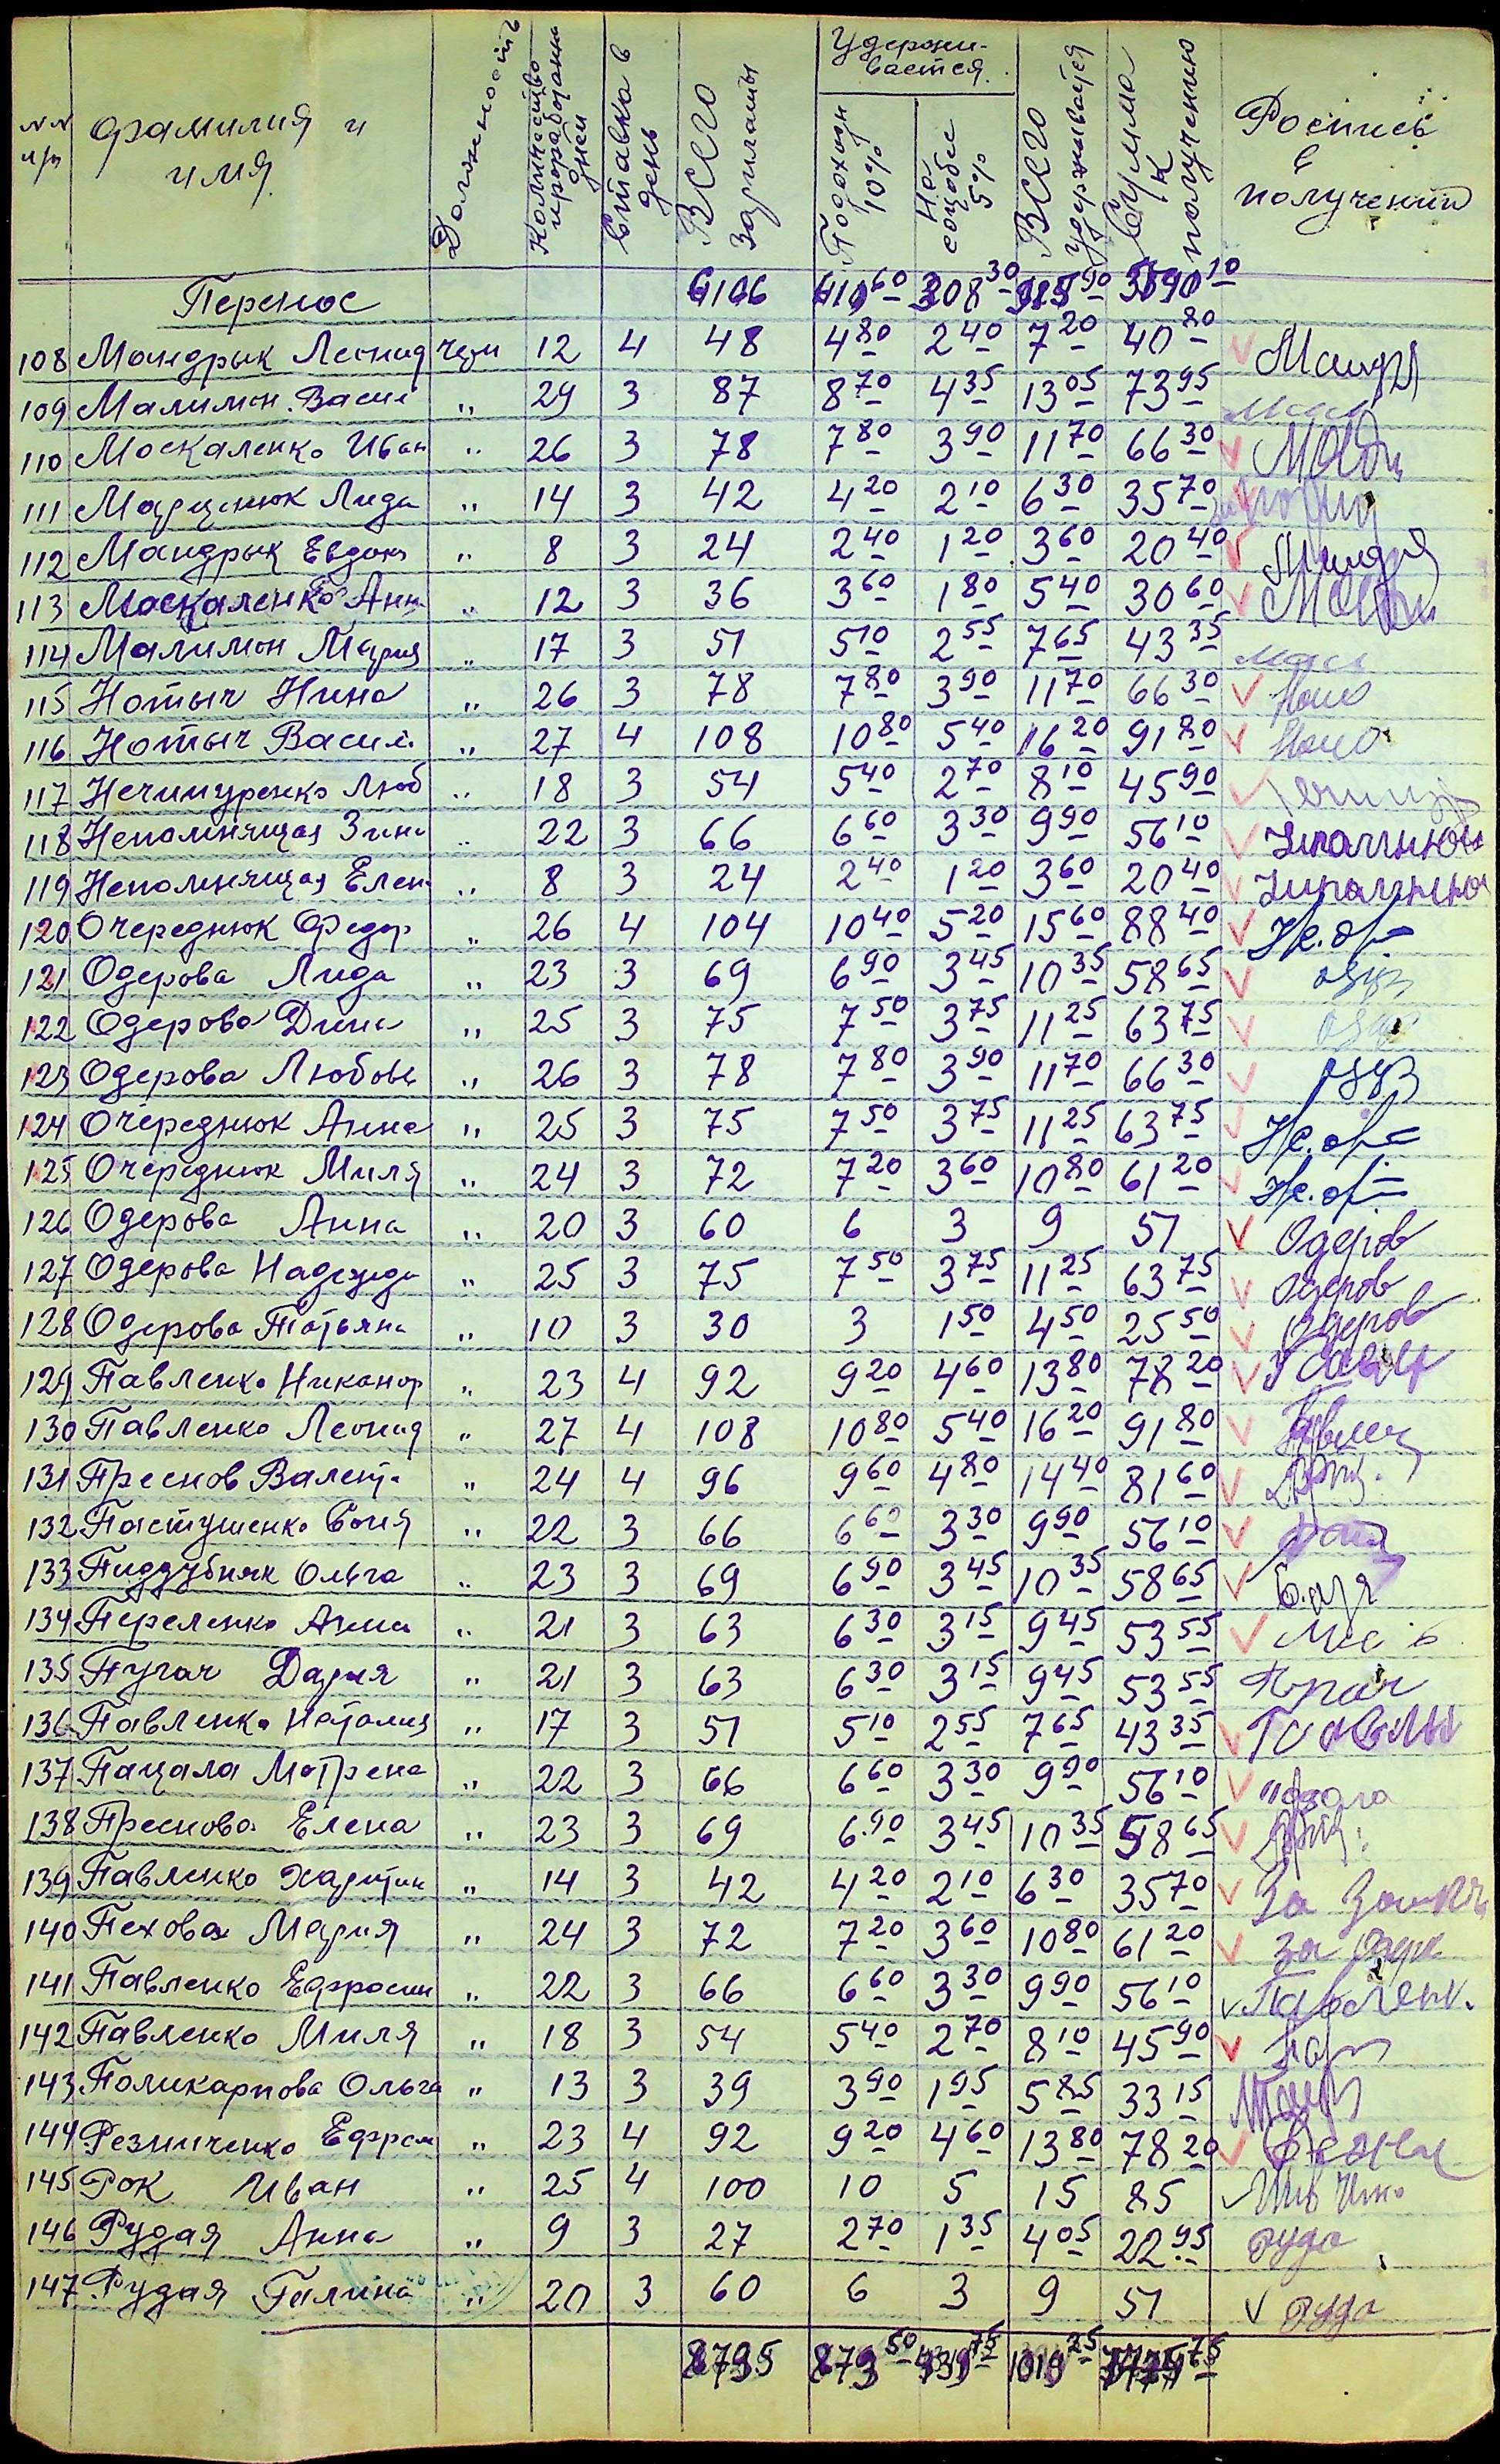 NN п/п Фамилия и имя Должность Количество проработанн дней Ставка в день Всего зарплаты Удерживается Подоходн 10% На соцобес 5% Всего удерживается Сумма к получению Роспись в получении
Перенос
108 Мандрык Леонид черн 12 4 48 4 80 2 40 7 20 40 80 Мандр
109 Малимон Васил " 29 3 87 8 70 4 35 13 05 73 95
110 Москаленко Иван " 26 3 78 7 80 3 90 11 70 66 30
111 Марценюк Лида " 14 3 42 4 20 2 10 6 30 35 70
112 Мандрык Евдок " 8 3 24 2 40 1 20 3 60 20 40
113 Москаленко Анн " 12 3 36 3 60 1 80 5 40 30 60
114 Малимон Мария " 17 3 51 5 10 2 55 7 65 43 35
115 Нотыч Нина " 26 3 78 7 80 3 90 11 70 66 30
116 Нотыч Васил " 27 4 108 10 80 5 40 16 20 91 80
117 Нечипуренко Люб " 18 3 54 5 40 2 70 8 10 45 90
118 Непомнящая Зин " 22 3 66 6 60 3 30 9 90 56 10
119 Непомнящая Елен " 8 3 24 2 40 1 20 3 60 20 40
120 Очереднюк Федор " 26 4 104 10 40 5 20 15 60 88 40
121 Одерова Лида " 23 3 69 6 90 3 45 10 35 58 65
122 Одерова Дина " 25 3 75 7 50 3 75 11 25 63 75
123 Одерова Любовь " 26 3 78 7 80 3 90 11 70 66 30
124 Очереднюк Анна " 25 3 75 7 50 3 75 11 25 63 75
125 Очереднюк Миля " 24 3 72 7 20 3 60 10 80 61 20
126 Одерова Анна " 20 3 60 6 3 9 51 Одеров
127 Одерова Надежда " 25 3 75 7 50 3 75 11 25 63 75 Одеров
128 Одерова Татьяна " 10 3 30 3 1 50 4 50 25 50 Одеров
129 Павленко Никанор " 23 4 92 9 20 4 60 13 80 78 20
130 Павленко Леонид " 27 4 108 10 80 5 40 16 20 91 80
131 Преснов Валент. " 24 4 96 9 60 4 80 14 40 81 60
132 Пастушенко Соня " 22 3 66 6 60 3 30 9 90 56 10
133 Пиддубняк Ольга " 23 3 69 6 90 3 45 10 35 58 65
134 Переленко Анна " 21 3 63 6 30 3 15 9 45 53 55
135 Пугач Дария " 21 3 63 6 30 3 15 9 45 53 55
136 Павленко Наталия " 17 3 51 5 10 2 55 7 65 43 35
137 Пацала Матрена " 22 3 66 6 60 3 30 9 90 56 10
138 Преснова Елена " 23 3 69 6 90 3 45 10 35 58 65
139 Павленко Харитин " 14 3 42 4 20 2 10 6 30 35 70 За
140 Пехова Мария " 24 3 72 7 20 3 60 10 80 61 20 за
141 Павленко Ефросин " 22 3 66 6 60 3 30 9 90 56 10 Павленк.
142 Павленко Миля " 18 3 54 5 40 2 70 8 10 45 90
143 Поликарпова Ольга " 13 3 39 3 90 1 95 5 85 33 15
144 Резниченко Ефрем " 23 4 92 9 20 4 60 13 80 78 20
145 Рок Иван " 25 4 100 10 5 15 85
146 Рудая Анна " 9 3 27 2 70 1 35 4 05 22 95 Руда
147 Рудая Галина " 20 3 60 6 3 9 51 Руда
8795